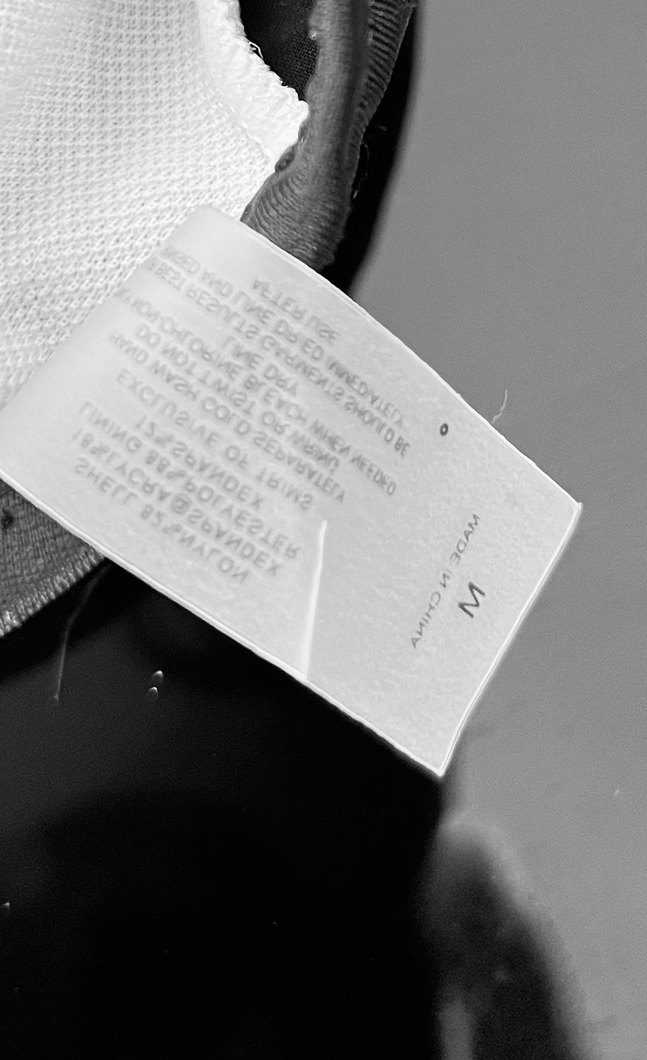 SHELL 82%NYLON
18%LYCRA@SPANDEX
LINING 88%POLYESTER
12%SPANDEX
EXCLUSIVE OF TRIMS
HAND WASH COLD SEPARATELY
DO NOT TWIST OR WRING
NON-CHLORINE BLEACH WHEN NEEDED
LINE DRY
BEST RESULTS GARMENTS SHOULD BE
RINSED AND LINE DRIED IMMEDIATELY
AFTER USE
M
MADE IN CHINA